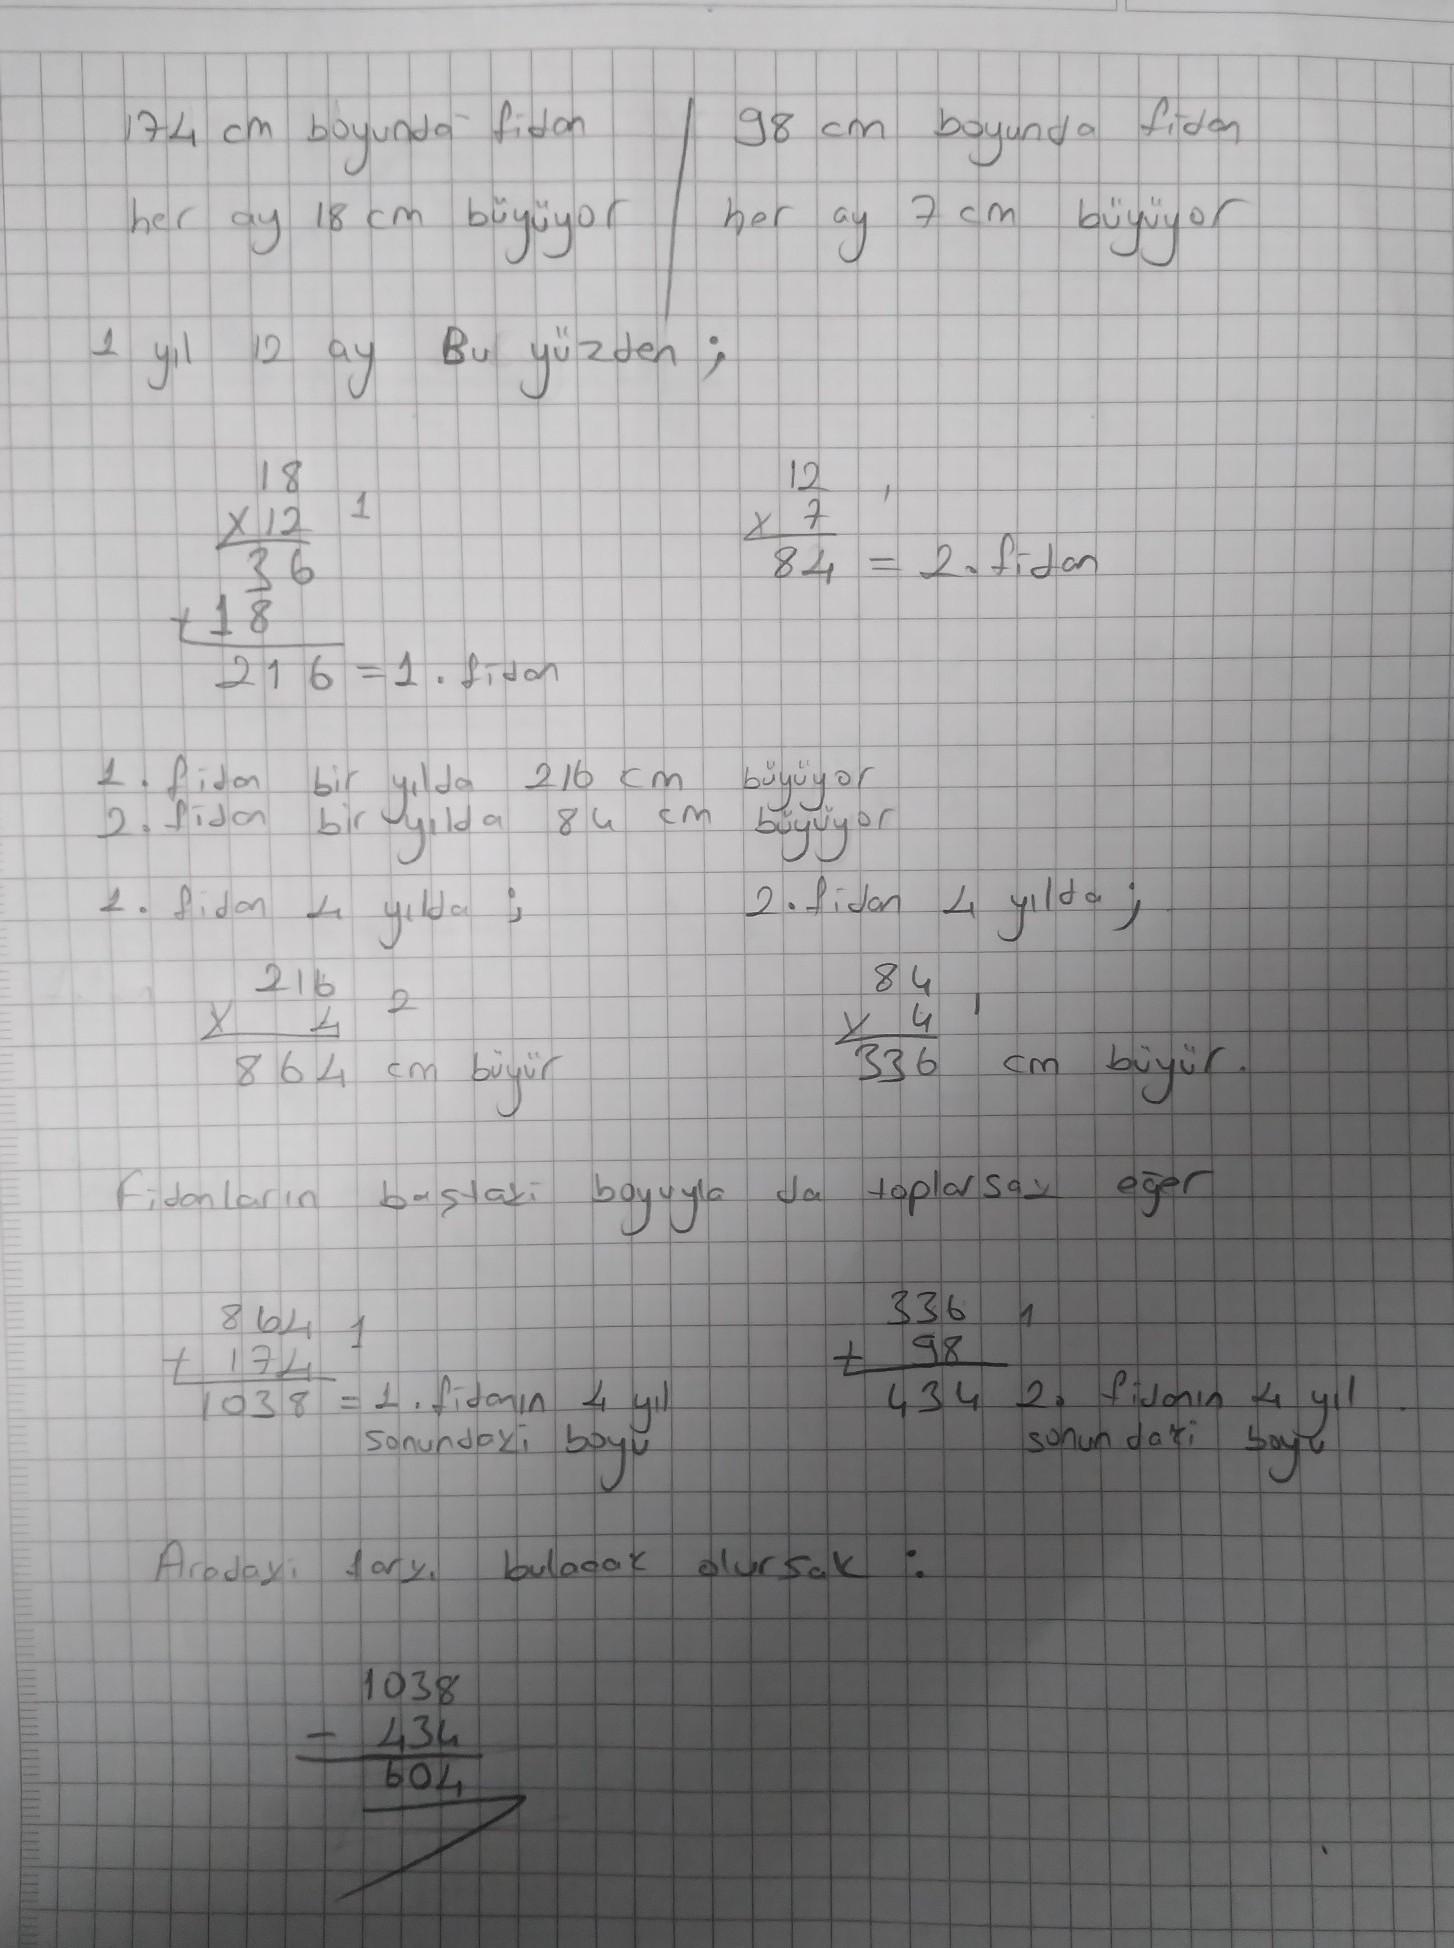 174 cm boyunda fidan / 98 cm boyunda fidan
her ay 18 cm büyüyor / her ay 7 cm büyüyor
1 yıl 12 ay Bu yüzden ;
18
x 12 1
36
+ 18
216 = 1. fidan
12 ,
x 7
84 = 2. fidan
1. fidan bir yılda 216 cm büyüyor
2. fidan bir yılda 84 cm büyüyor
1. fidan 4 yılda ;
216
x 4 2
864 cm büyür
2. fidan 4 yılda ;
84
x 4 1
336 cm büyür.
Fidanların baştaki boyuyla da toplarsak eğer
864 1
+ 174
1038 = 1. fidanın 4 yıl
sonundaki boyu
336 1
+ 98
434 2. fidanın 4 yıl
sonundaki boyu
Aradaki farkı bulacak olursak :
1038
- 434
604